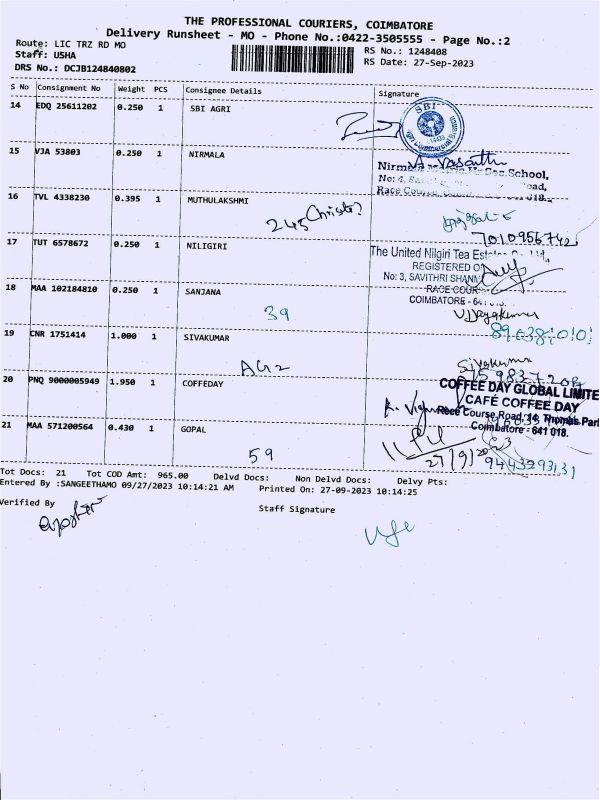 THE PROFESSIONAL COURIERS, COIMBATORE
Delivery Runsheet - MO - Phone No.:0422-3505555 - Page No.:2
Route: LIC TRZ RD MO
RS No.: 1248408
Staff: USHA
RS Date: 27-Sep-2023
DRS No.: DCJB124840802
S No Consignment No Weight PCS Consignee Details Signature
14 EDQ 25611202 0.250 1 SBI AGRI
SBI
15 VJA 53803 0.250 1 NIRMALA
Vasanthi
Sec.School,
No: 4,
Road,
Race
16 TVL 4338230 0.395 1 MUTHULAKSHMI
245 Christ
7010956742
17 TUT 6578672 0.250 1 NILIGIRI
The United Nilgiri Tea
REGISTERED
No: 3, SAVITHRI
RACE
COIMBATORE -
18 MAA 102184810 0.250 1 SANJANA
39
Vijayakumar
19 CNR 1751414 1.000 1 SIVAKUMAR
AG2
Sivakumar
20 PNQ 9000005949 1.950 1 COFFEDAY
COFFEE DAY GLOBAL LIMITE
CAFÉ COFFEE DAY
Race Course Road, 14, Thomas Park
Coimbatore - 641 018.
21 MAA 571200564 0.430 1 GOPAL
59
27/9/20
Tot Docs: 21 Tot COD Amt: 965.00 Delvd Docs: Non Delvd Docs: Delvy Pts:
Entered By :SANGEETHAMO 09/27/2023 10:14:21 AM Printed On: 27-09-2023 10:14:25
Verified By
Staff Signature